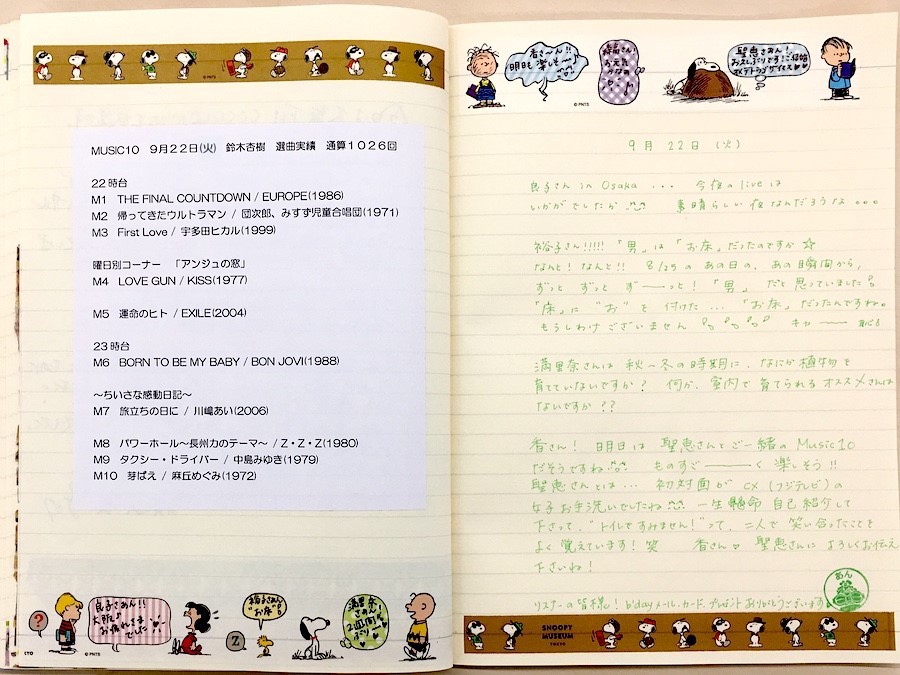 MUSIC10 9月22日(火) 鈴木杏樹 選曲実績 通算1026回
22時台
M1 THE FINAL COUNTDOWN / EUROPE(1986)
M2 帰ってきたウルトラマン / 団次郎、みすず児童合唱団(1971)
M3 First Love / 宇多田ヒカル(1999)
曜日別コーナー 「アンジュの窓」
M4 LOVE GUN / KISS(1977)
M5 運命のヒト / EXILE(2004)
23時台
M6 BORN TO BE MY BABY / BON JOVI(1988)
~ちいさな感動日記~
M7 旅立ちの日に / 川嶋あい(2006)
M8 パワーホール~長州力のテーマ~ / Z・Z・Z(1980)
M9 タクシー・ドライバー / 中島みゆき(1979)
M10 芽ばえ / 麻丘めぐみ(1972)
?
良子さあん!!
大阪
お疲れさま
でした
裕子さあん
"お床"
Z
満里奈
さあん!
2週間
ぶり
©PNTS
香さ~ん!!
明日も楽しそ~♪
お元気
かなぁ
©PNTS
聖恵さあん!
お久しぶりです!ご結婚
9月 22日 (火)
良子さん in Osaka ... 今夜の liveは
いかがでしたか 素晴らしい夜なんだろうな...
裕子さん!!!!! 「男」は「お床」だったのですか☆
なんと! なんと!! 8/25の あの日の、あの瞬間から、
ずっと ずっと ずーーっと! 「男」 だと思っていました
「床」に "お" を 付けた... 「お床」だったんですね。
もうしわけございません キャーー 恥!
満里奈さんは 秋~冬の時期に、なにか植物を
育てていないですか? 何か、室内で育てられるオススメさんは
ないですか??
香さん! 明日は 聖恵さんとご一緒の Music10
だそうですね ものすごーーーく 楽しそう!!
聖恵さんとは... 初対面が CX (フジテレビ)の
女子お手洗いでしたね 一生懸命 自己紹介して
下さって、"トイレですみません!"って、二人で 笑い合ったことを
よく覚えています!笑 香さん 聖恵さんに よろしくお伝え
下さいね!
あん
リスナーの皆様! b'dayメール、カード、プレゼントありがとうございます
SNOOPY
MUSEUM
TOKYO